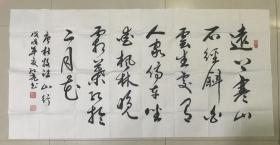 远上寒山
石径斜白
云生处有
人家停车坐
爱枫林晚
霜叶红于
二月花
唐杜牧诗山行
戊戌年夏